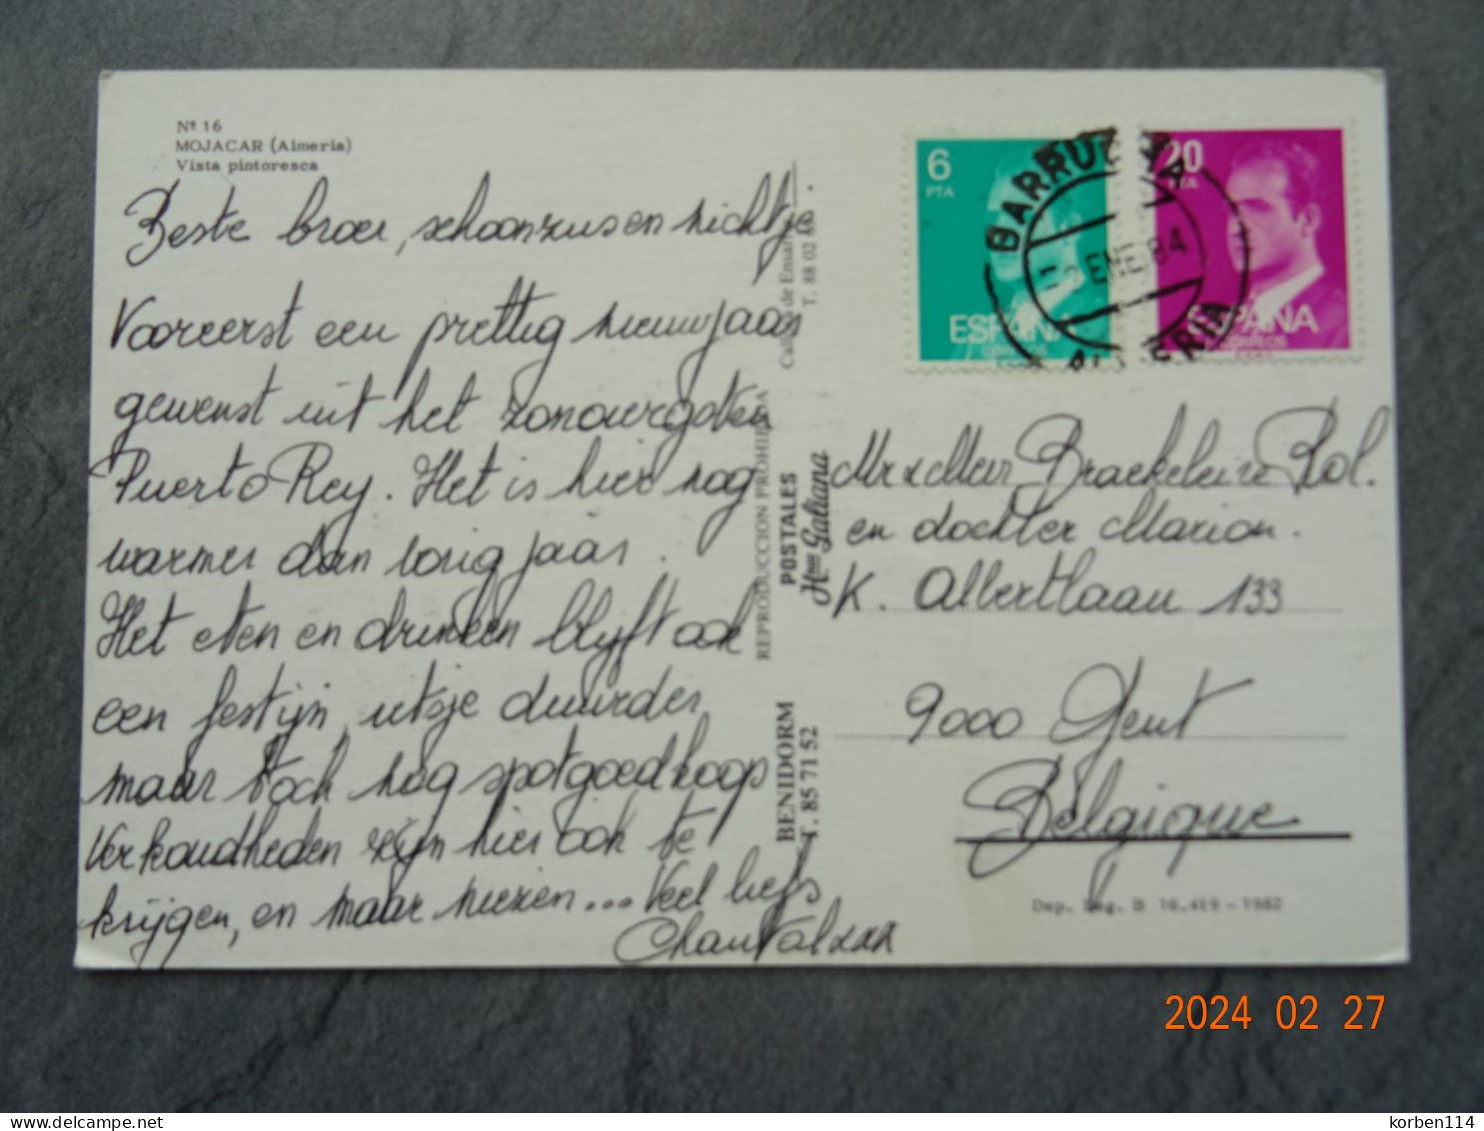 Nº 16
MOJACAR (Almeria)
Vista pintoresca
Beste broer, schoonzus en nichtje
Vooreerst een prettig nieuwjaar
gewenst uit het zonovergoten
Puerto Rey. Het is hier nog
warmer dan vorig jaar.
Het eten en drinken blijft ook
een festijn, ietsje duurder
maar toch nog spotgoedkoop
Verkoudheden zijn hier ook te
krijgen, en maar niezen... Veel liefs
Chantal xxx
REPRODUCCION PROHIBIDA
POSTALES
Hnos Galiana
T. 88 02
BENIDORM
T. 85 71 52
6
PTA
ESPAÑA
CORREOS
20
PTA
ESPAÑA
CORREOS
GARRUCHA
ENE 84
ALMERIA
Mr & Mevr Braekeleire Rol.
en dochter Marion.
K. Albertlaan 133
9000 Gent
Belgique
Dep. Leg. B 16.419 - 1982
2024 02 27
korben114